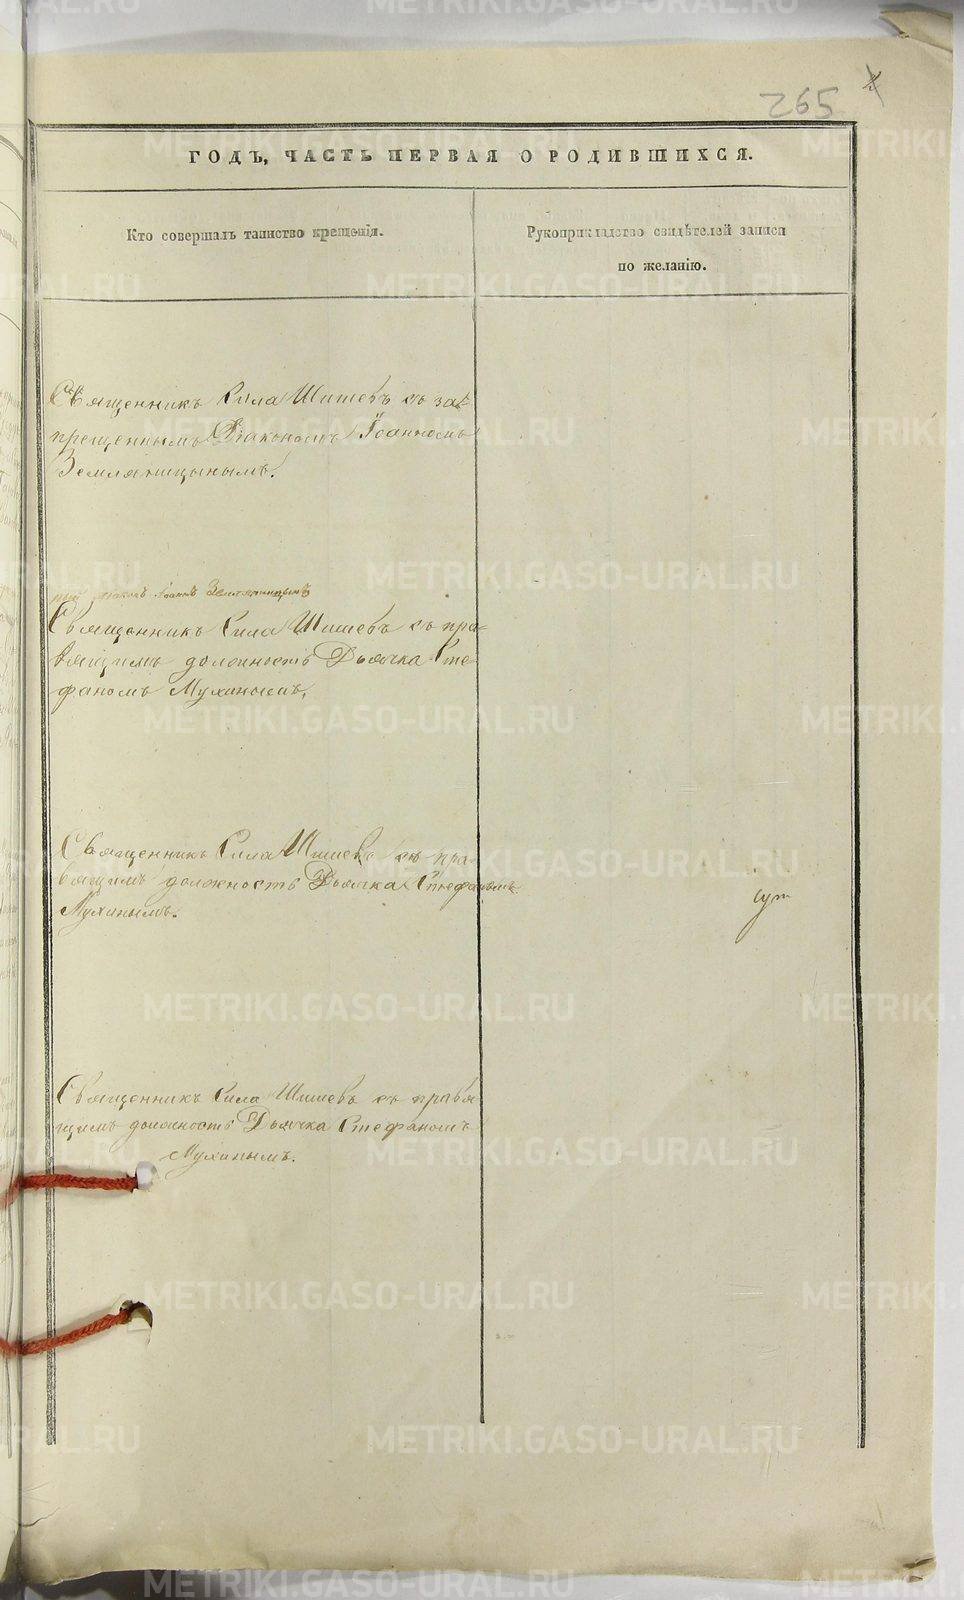 265
ГОДЪ, ЧАСТЬ ПЕРВАЯ О РОДИВШИХСЯ.
Кто совершалъ таинство крещенія.
Рукоприкладство свидѣтелей записи
по желанію.
Священникъ Сила Шишевъ съ за-
прещеннымъ Діакономъ Іоанномъ
Земляницынымъ.
Священникъ Сила Шишевъ съ пра-
вящимъ должность Дьячка Сте-
фаномъ Мухинымъ.
Священникъ Сила Шишевъ съ пра-
вящимъ должность Дьячка Стефаномъ
Мухинымъ.
Священникъ Сила Шишевъ съ правя-
щимъ должность Дьячка Стефаномъ
Мухинымъ.
METRIKI.GASO-URAL.RU